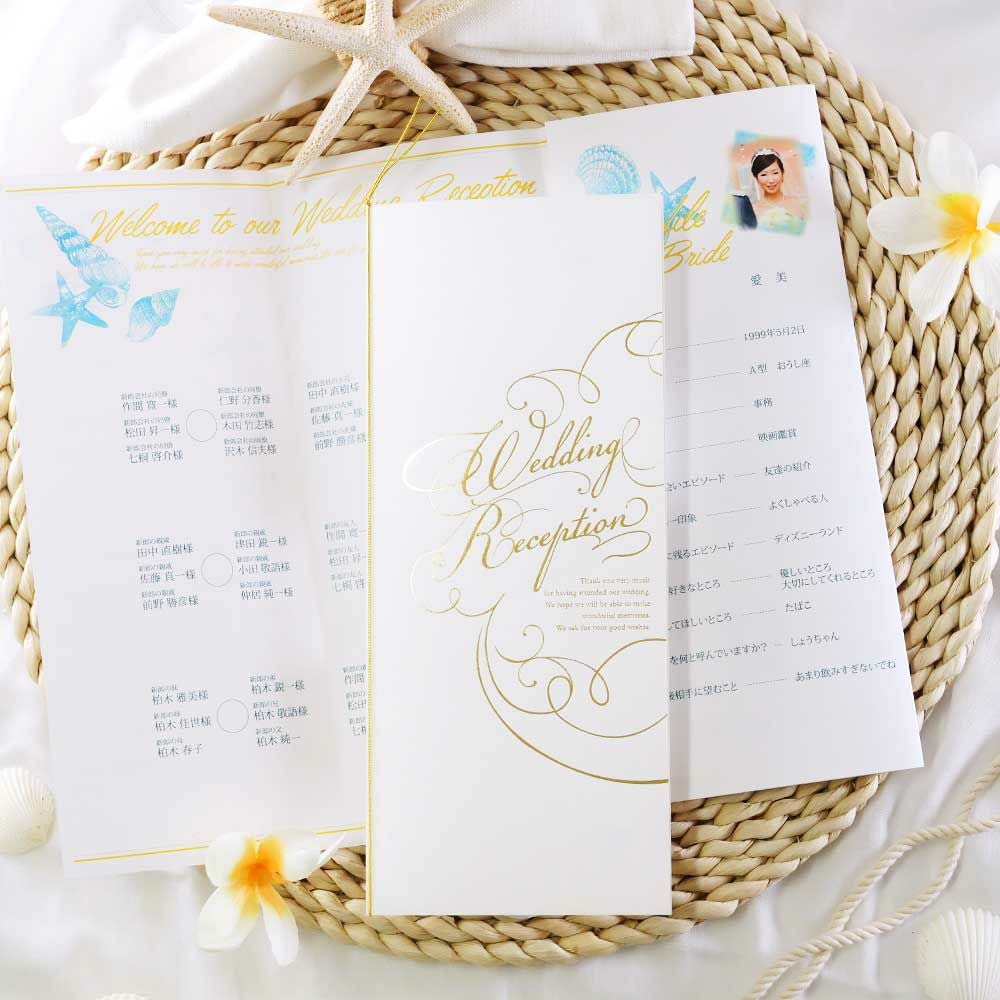 Welcome to our Wedding Reception
Thank you very much for having attended our wedding.
新郎会社の同僚
作間 寛一様
新郎会社の同僚
松田 昇一様
新郎会社の同僚
七桐 啓介様
新郎会社の同僚
仁野 分香様
新郎会社の同僚
木田 竹志様
新郎会社の同僚
沢木 信夫様
田中 直樹様
佐藤 真一様
前野 勝彦様
新郎の親戚
田中 直樹様
新郎の親戚
佐藤 真一様
新郎の親戚
前野 勝彦様
新郎の親戚
津田 鋭一様
新郎の親戚
小田 敬語様
新郎の親戚
仲居 純一様
新郎の友人
作間 寛
新郎の友人
松田 昇
新郎の友人
七桐 啓
新郎の妹
柏木 雅美様
新郎の妹
柏木 佳世様
新郎の母
柏木 春子
新郎の弟
柏木 鋭一様
新郎の兄
柏木 敬語様
新郎の父
柏木 純一
作間
松田
七桐
Wedding
Reception
Thank you very much
for having attended our wedding.
We hope we will be able to make
wonderful memories.
We ask for your good wishes.
file
Bride
愛 美
1999年5月2日
A型 おうし座
事務
映画鑑賞
会いエピソード 友達の紹介
一印象 よくしゃべる人
に残るエピソード ディズニーランド
好きなところ 優しいところ
大切にしてくれるところ
てほしいところ たばこ
を何と呼んでいますか? しょうちゃん
後相手に望むこと あまり飲みすぎないでね